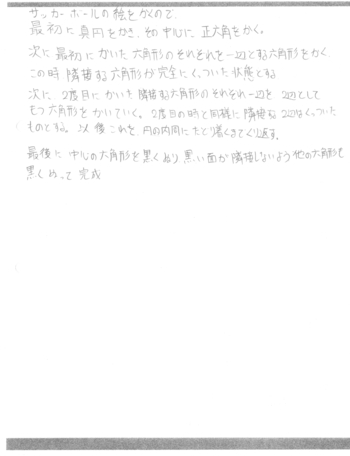 サッカーボールの絵をかくので
最初に 真円をかき、その中心に 正六角をかく。
次に 最初にかいた六角形のそれぞれを一辺とする六角形をかく
この時 隣接する六角形が完全にくっついた状態とする
次に 2度目にかいた隣接する六角形のそれぞれ一辺を 2辺として
もつ六角形をかいていく。2度目の時と同様に隣接な 2辺はくっついた
ものとする。以後これを 円の内周にたどり着くまでくり返す。
最後に 中心の六角形を黒くぬり 黒い面が隣接しないよう他の六角形も
黒くぬって 完成